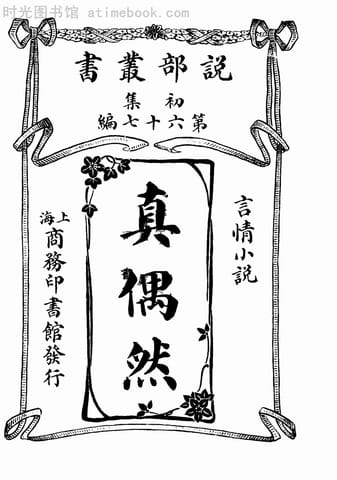 时光图书馆 atimebook.com
説部叢書
初集
第六十七編
言情小説
真偶然
上海商務印書館發行